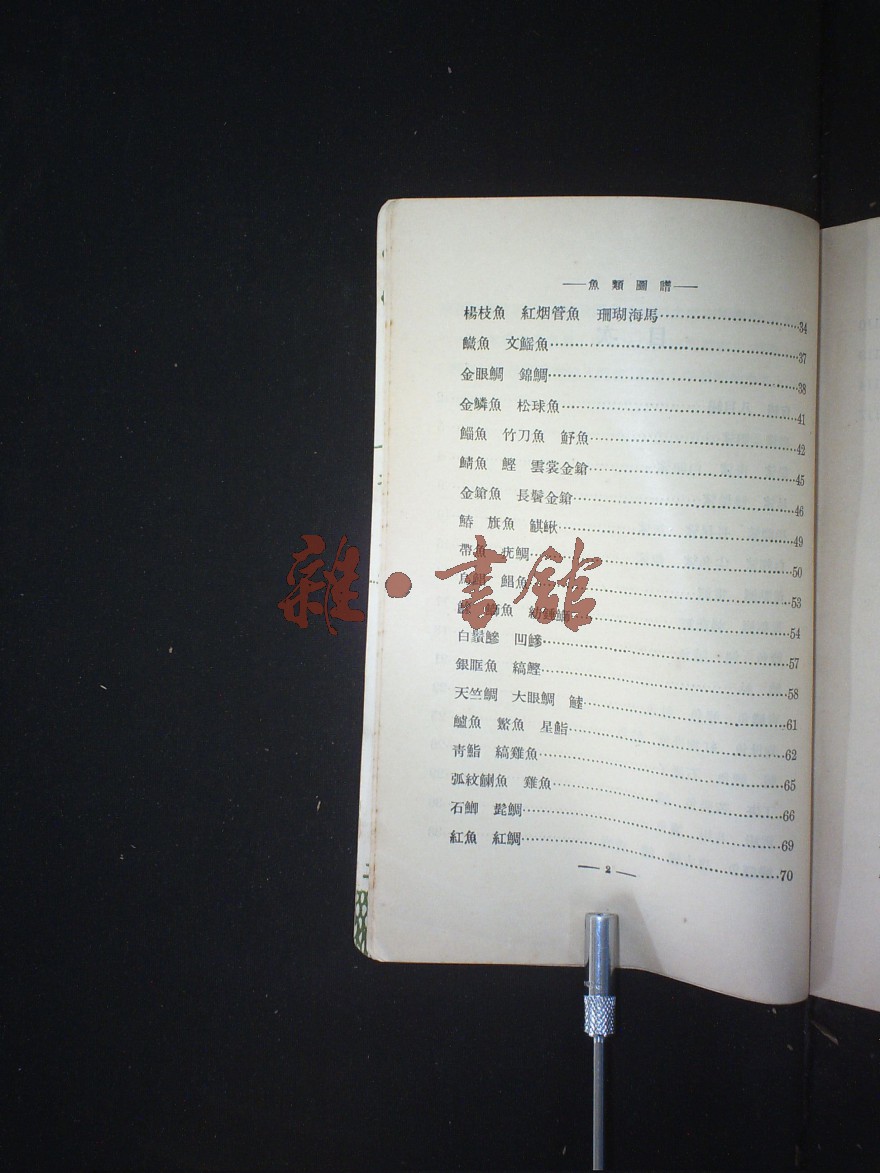 魚類圖譜
楊枝魚 紅烟管魚 珊瑚海馬 34
鱵魚 文鰩魚 37
金眼鯛 錦鯛 38
金鱗魚 松球魚 41
鯔魚 竹刀魚 魣魚 42
鯖魚 鰹 雲裳金鎗 45
金鎗魚 長鬐金鎗 46
鰆 旗魚 49
帶魚 鯛 50
鯧魚 53
魚 54
白鬚鰺 凹鰺 57
銀眶魚 縞鰹 58
天竺鯛 大眼鯛 61
鱸魚 繁魚 星鮨 62
靑鮨 縞雞魚 65
弧紋鯻魚 雞魚 66
石鯽 髭鯛 69
紅魚 紅鯛 70
2
雜·書館